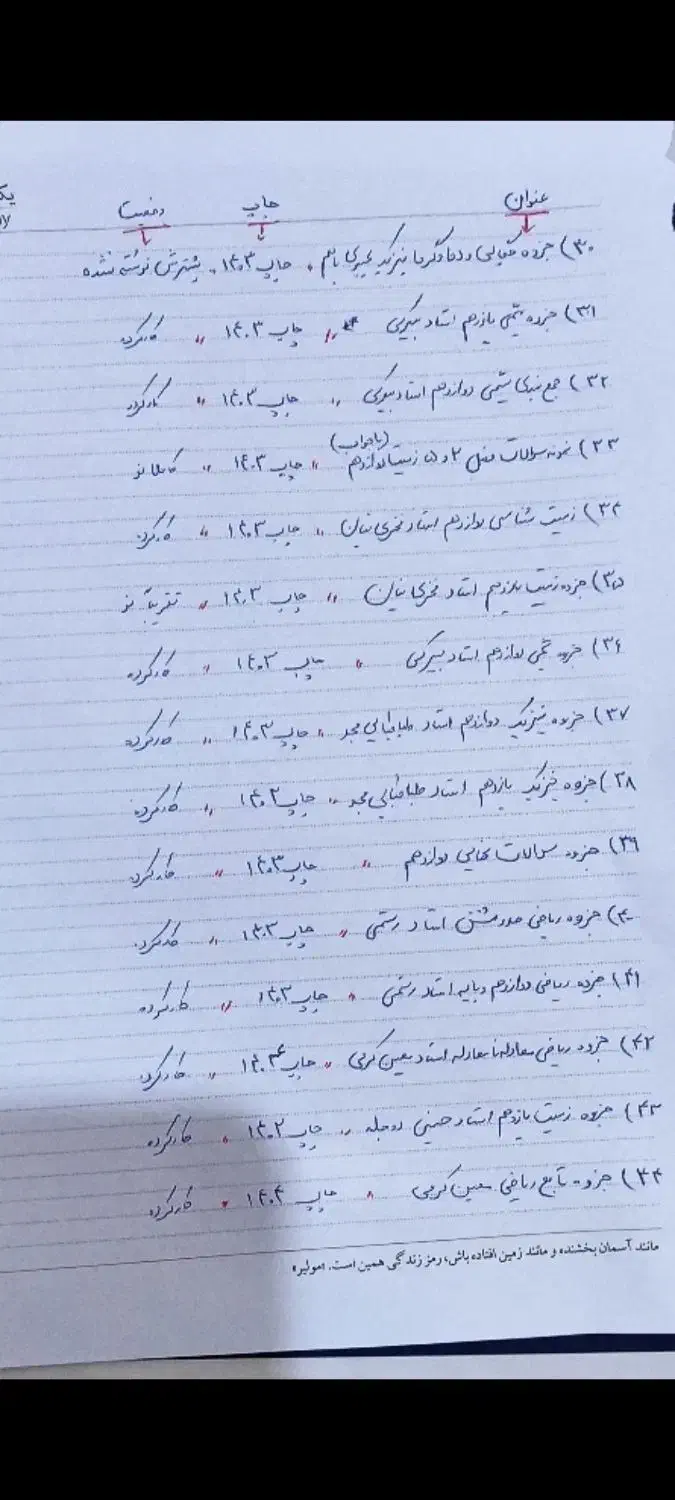 عنوان چاپ وضعیت
۳۰) جزوه چگالی و دما و گرما فیزیک یحیوی باهم چاپ ۱۴۰۳ بیشترش نوشته نشده
۳۱) جزوه شیمی یازدهم استاد بیگی " چاپ ۱۴۰۳ " کارکرده
۳۲) جمع بندی شیمی دوازدهم استاد " چاپ ۱۴۰۳ " کارکرده
۳۳) نمونه سوالات فصل ۲ و ۵ زیست دوازدهم (با جواب) " چاپ ۱۴۰۳ " کاملا نو
۳۴) زیست شناسی دوازدهم استاد فخری " چاپ ۱۴۰۳ " کارکرده
۳۵) جزوه زیست یازدهم استاد فخری " چاپ ۱۴۰۳ " تقریباً نو
۳۶) جزوه شیمی دوازدهم استاد " چاپ ۱۴۰۳ " کارکرده
۳۷) جزوه فیزیک دوازدهم استاد طباطبایی مجد " چاپ ۱۴۰۳ " کارکرده
۳۸) جزوه فیزیک یازدهم استاد طباطبایی مجد " چاپ ۱۴۰۲ " کارکرده
۳۹) جزوه سوالات نهایی دوازدهم " چاپ ۱۴۰۳ " کارکرده
۴۰) جزوه ریاضی استاد رستمی " چاپ ۱۴۰۳ " کارکرده
۴۱) جزوه ریاضی دوازدهم و پایه استاد رستمی " چاپ ۱۴۰۳ " کارکرده
۴۲) جزوه ریاضی معادله نامعادله استاد معین کرمی " چاپ ۱۴۰۴ " کارکرده
۴۳) جزوه زیست یازدهم استاد حسینی دو جلد " چاپ ۱۴۰۲ " کارکرده
۴۴) جزوه تابع ریاضی معین کرمی " چاپ ۱۴۰۴ " کارکرده
مانند آسمان بخشنده و مانند زمین افتاده باش، رمز زندگی همین است. «مولیر»